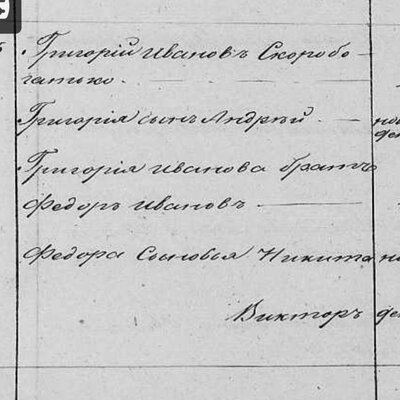 Григорій Ивановъ Скоробо-
гатько.
Григорія сынъ Андрѣй
Григорія Иванова братъ
Федоръ Ивановъ
Федора Сыновья Никита
Викторъ